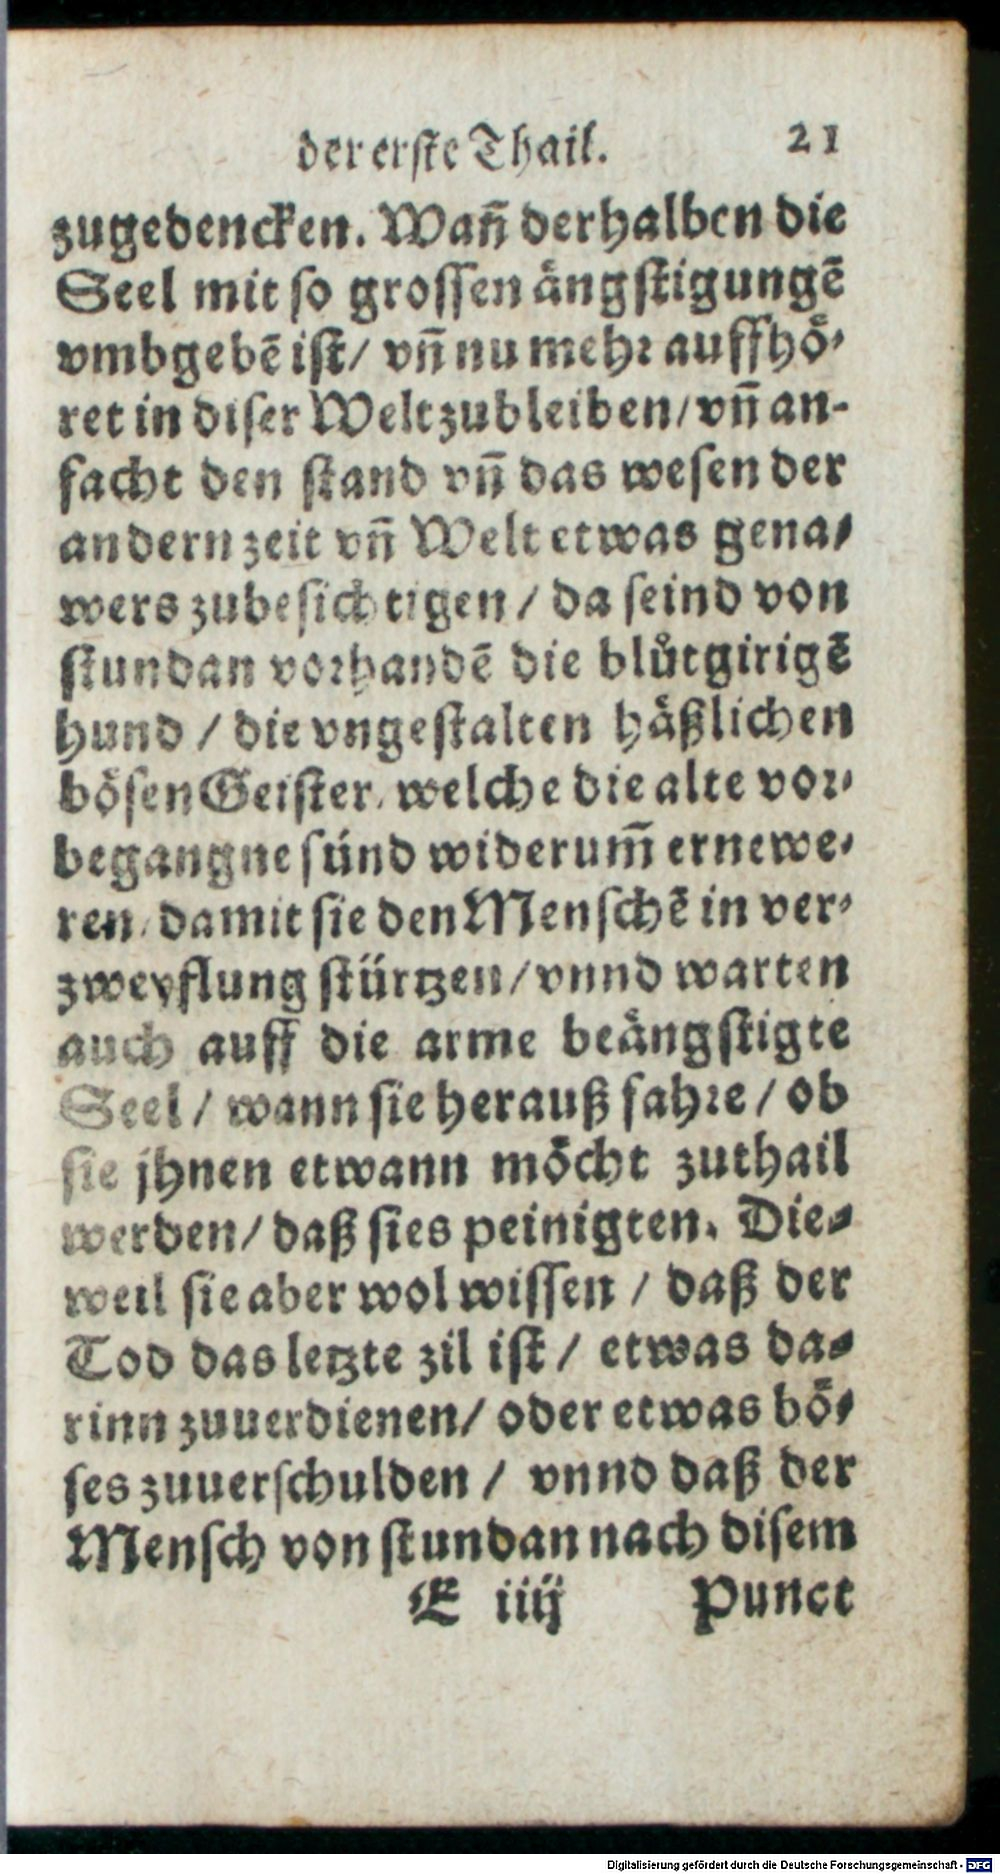 der erste Thail. 21
zugedencken. Wañ derhalben die
Seel mit so grossen ängstigungē
vmbgebē ist/ vñ nu mehr auffhö-
ret in diser Welt zubleiben/ vñ an-
facht den stand vñ das wesen der
andern zeit vñ Welt etwas gena-
wers zubesichtigen / da seind von
stundan vorhandē die blůtgirigē
hund / die vngestalten häßlichen
bösen Geister, welche die alte vor-
begangne sünd widerum̃ ernewe-
ren, damit sie den Menschē in ver-
zweyflung stürtzen/ vnnd warten
auch auff die arme beängstigte
Seel / wann sie herauß fahre / ob
sie jhnen etwann möcht zuthail
werden/ daß sies peinigten. Die-
weil sie aber wol wissen / daß der
Tod das letzte zil ist / etwas da-
rinn zuuerdienen/ oder etwas bö-
ses zuuerschulden / vnnd daß der
Mensch von stundan nach disem
E iiij Punct
Digitalisierung gefördert durch die Deutsche Forschungsgemeinschaft - DFG